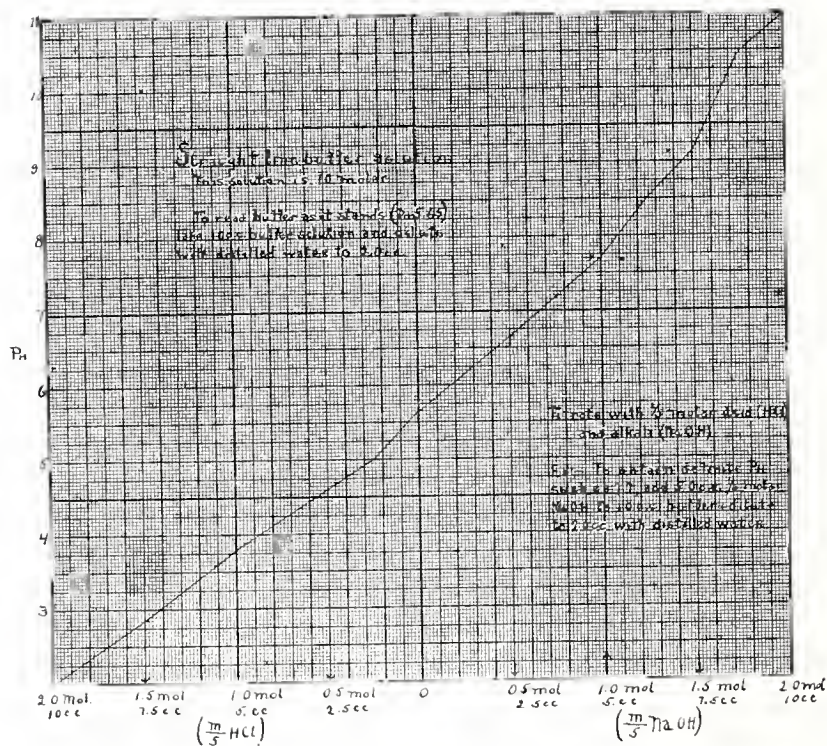 11
10
9
8
7
6
5
4
3
PH
Straight line buffer solution
This solution is .10 molar
To read buffer as it stands
Take 10cc buffer solution and dilute
with distilled water to 20cc
Titrate with 1/5 molar acid (HCl)
and alkali (NaOH)
Ex:- To obtain definite PH
such as 7.7, add 5.0cc 1/5 molar
NaOH to 10.0cc buffer dilute
to 20cc with distilled water
2.0 mol. 1.5 mol 1.0 mol 0.5 mol 0 0.5 mol 1.0 mol 1.5 mol 2.0 mol
10cc 7.5cc 5.cc 2.5cc 2.5cc 5.cc 7.5cc 10cc
(m/5 HCl) (m/5 NaOH)